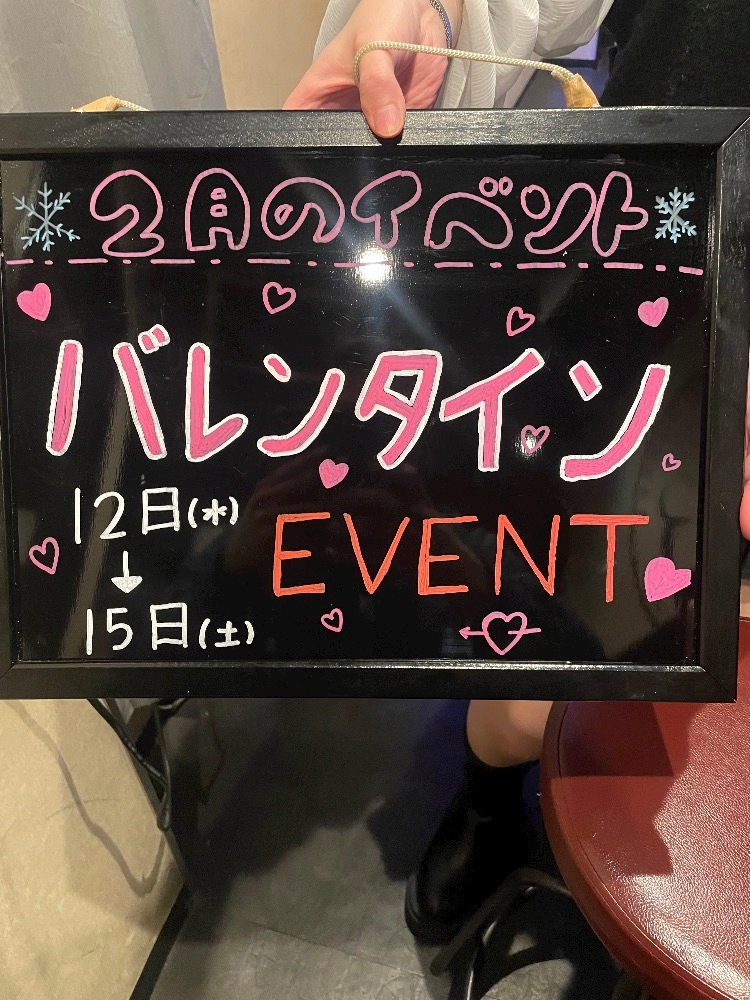 2月のイベント
バレンタイン
12日(水)
↓
15日(土)
EVENT